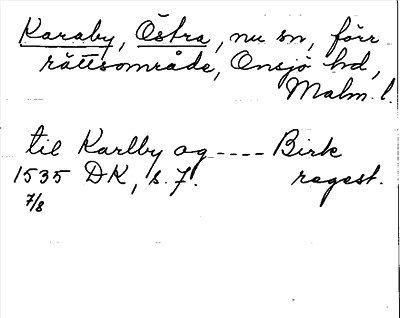 Karaby, Östra, nu sn, förr
rättsområde, Onsjö hd,
Malm. l.
til Karlby og ---- Birk
1535 DK, s. 7. regest.
7/8